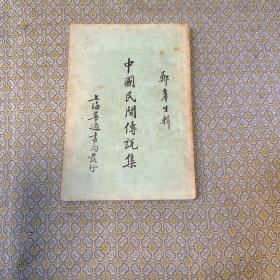 鄭辜生輯
中國民間傳說集
上海華通書局發行